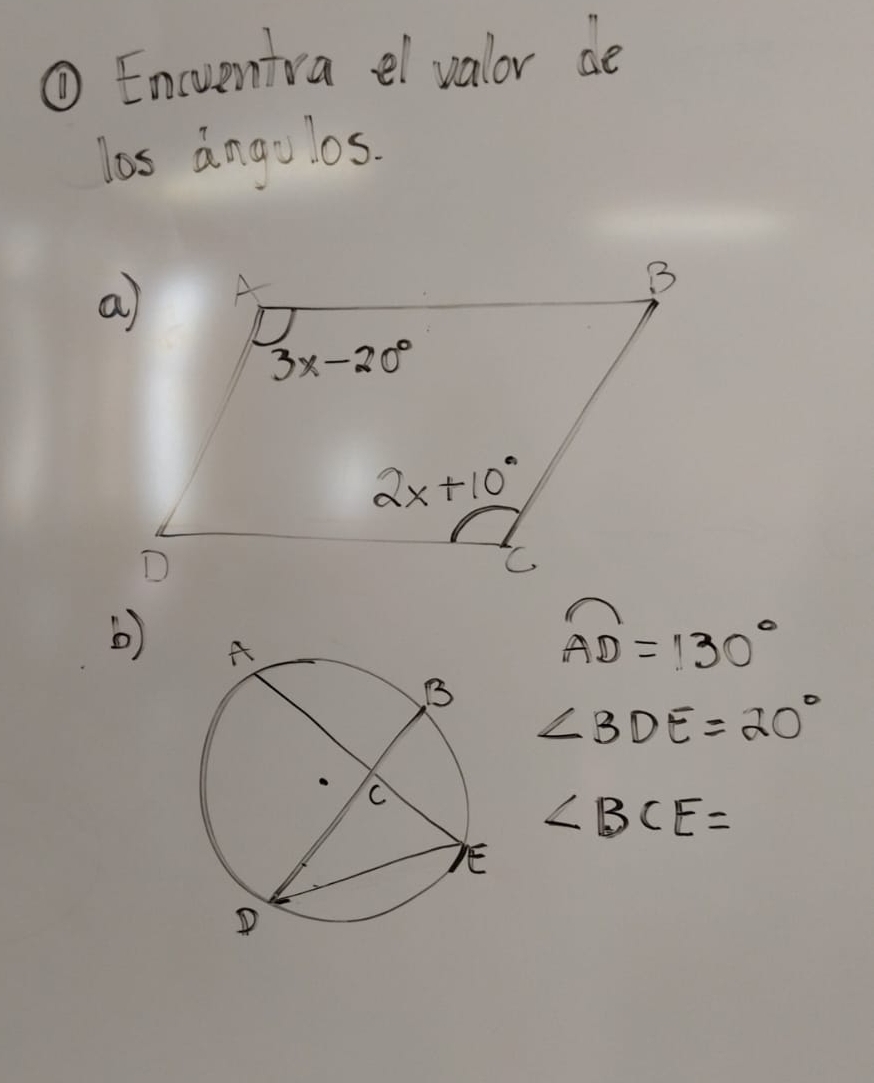 ① Encuentra el valor de
los ángulos.
a)
A
B
3x-20°
2x+10°
D
C
b)
A
B
C
D
E
AD = 130°
∠BDE = 20°
∠BCE =